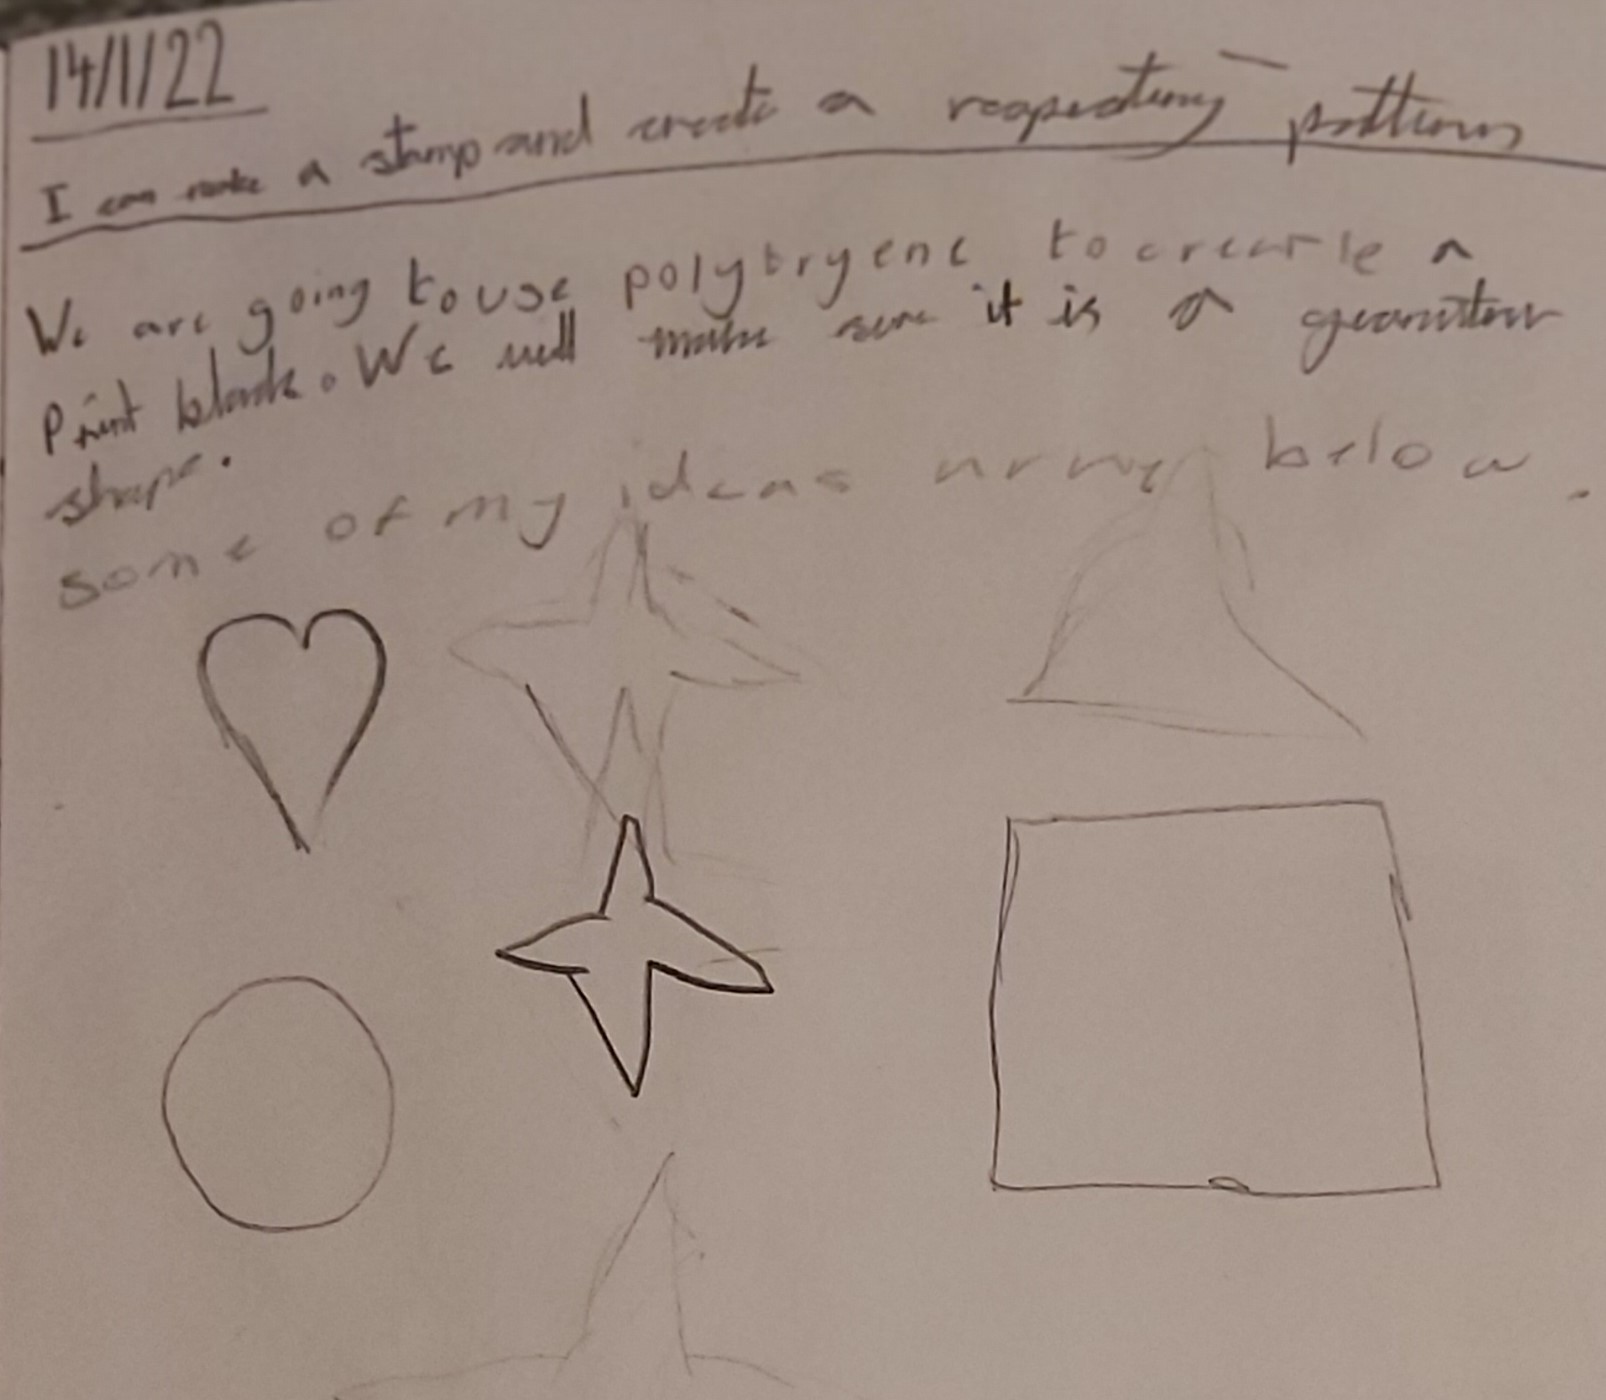 14/1/22
I can make a stamp and create a reapeating pattern
We are going to use polytryene to crearte a
Print block. We will make sure it is a
shape.
some of my ideas below.